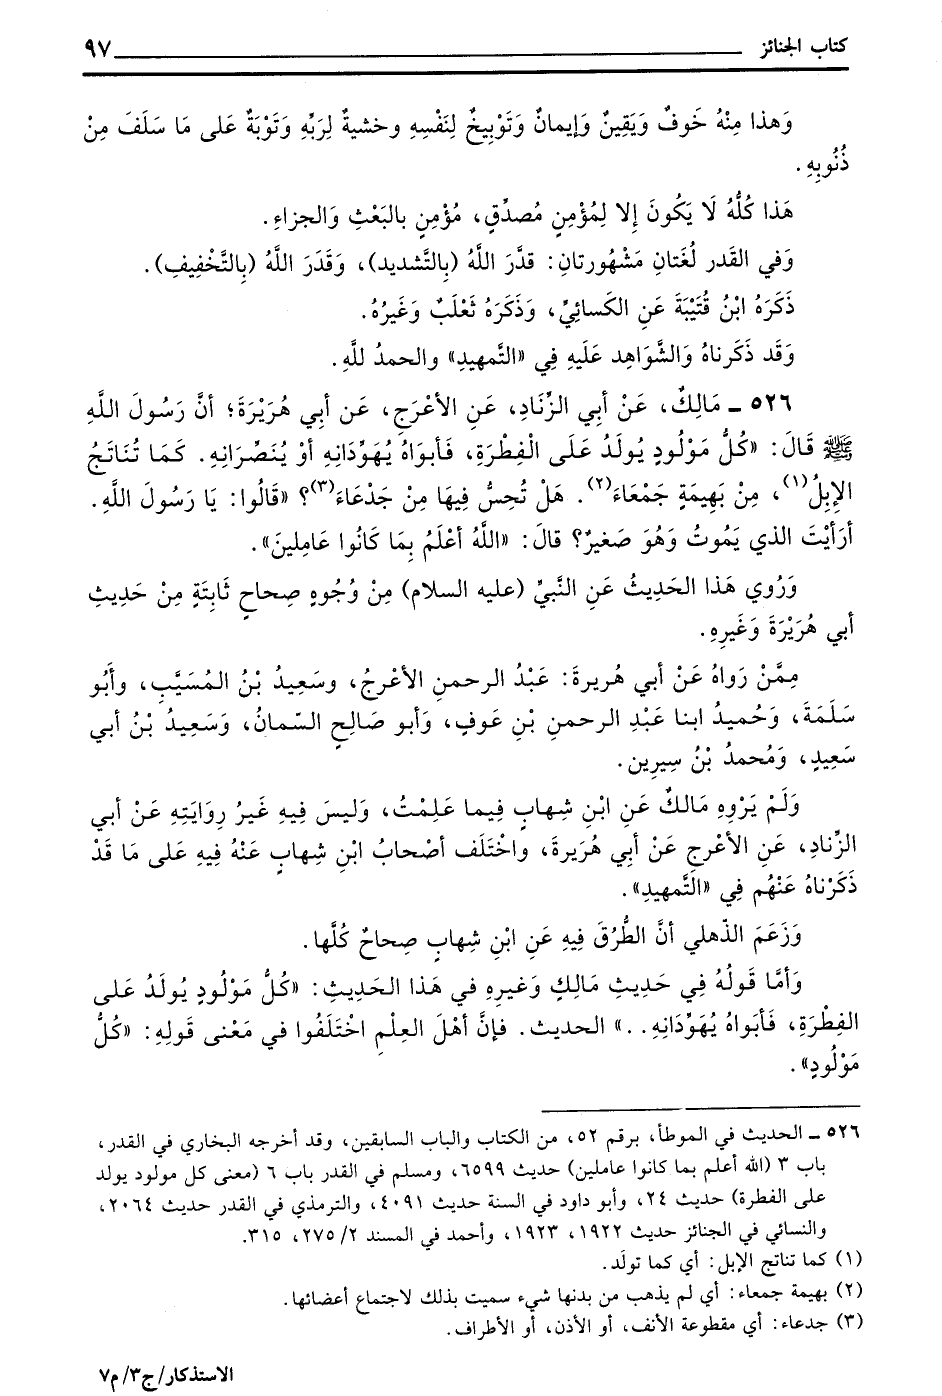 كتاب الجنائز ٩٧
وَهذا مِنْهُ خَوفٌ وَيَقِينٌ وَإيمانٌ وَتَوْبِيخٌ لِنَفْسِهِ وخشيةٌ لِرَبِّهِ وَتَوْبَةٌ عَلى مَا سَلَفَ مِنْ
ذُنُوبِهِ.
هَذا كُلُّهُ لَا يَكُونَ إلا لِمُؤْمِنٍ مُصدِّقٍ، مُؤْمِنٍ بالبَعْثِ وَالجزاءِ.
وَفي القَدر لُغَتانِ مَشْهُورتانِ: قدَّرَ اللَّهُ (بِالتَّشديد)، وَقَدَرَ اللَّهُ (بِالتَّخْفِيفِ).
ذَكَرَهُ ابْنُ قُتَيْبَةَ عَنِ الكَسائِيِّ، وَذَكَرَهُ ثَعْلَبٌ وَغَيرُهُ.
وَقَد ذَكَرناهُ وَالشَّوَاهِد عَلَيهِ فِي «التَّمهيد» والحمدُ للَّهِ.
٥٢٦ ـ مَالِكٌ، عَنْ أبي الزِّنَادِ، عَنِ الأعْرَجِ، عَن أبي هُرَيْرَةَ؛ أنَّ رَسُولَ اللَّهِ
ﷺ قَالَ: «كُلُّ مَوْلُودٍ يُولَدُ عَلَى الْفِطْرَةِ، فَأبَوَاهُ يُهَوِّدَانِهِ أوْ يُنَصِّرَانِهِ. كَمَا تُنَاتَجُ
الإبِلُ(١)، مِنْ بَهِيمَةٍ جَمْعَاءَ(٢). هَلْ تُحِسُّ فِيهَا مِنْ جَدْعَاءَ(٣)؟ «قَالُوا: يَا رَسُولَ اللَّهِ.
أرَأيْتَ الذي يَمُوتُ وَهُوَ صَغيرٌ؟ قالَ: «اللَّهُ أعْلَمُ بِمَا كَانُوا عَامِلينَ».
وَرُوي هَذا الحَديثُ عَنِ النَّبيِّ (عليه السلام) مِنْ وُجُوهٍ صِحاحٍ ثَابِتَةٍ مِنْ حَدِيثِ
أبي هُرَيْرَةَ وَغَيرِهِ.
مِمَّنْ رَواهُ عَنْ أبي هُريرةَ: عَبْدُ الرحمنِ الأعْرجُ، وسَعِيدُ بْنُ المُسَيَّبِ، وأَبُو
سَلَمَةَ، وَحُميدُ ابنا عَبْدِ الرحمنِ بْنِ عَوفٍ، وَأبو صَالِحٍ السّمانُ، وَسَعِيدُ بْنُ أبي
سَعِيدٍ، وَمُحمدُ بْنُ سِيرِين.
وَلَمْ يَرْوِهِ مَالكٌ عَنِ ابْنِ شهابٍ فِيما عَلِمْتُ، وَليسَ فِيهِ غَيرُ رِوَايَتِهِ عَنْ أبي
الزِّنادِ، عَنِ الأعْرجِ عَنْ أبي هُرَيرةَ، واخْتَلَف أصْحابُ ابْنِ شِهابٍ عَنْهُ فِيهِ عَلى مَا قَدْ
ذَكَرْناهُ عَنْهُم فِي «التَّمهيدِ».
وَزَعَمَ الذّهلي أنَّ الطُّرُقَ فِيهِ عَنِ ابْنِ شِهابٍ صِحاحٌ كُلَّها.
وَأمَّا قَولُهُ فِي حَديثِ مَالِكٍ وَغَيرِهِ في هَذا الحَدِيثِ: «كُلُّ مَوْلُودٍ يُولَدُ عَلى
الفِطْرَةِ، فَأبَواهُ يُهَوِّدَانِهِ. .» الحديث. فإنَّ أهْلَ العِلْمِ اخْتَلَفُوا في مَعْنى قَولِهِ: «كُلُّ
مَوْلُودٍ».
٥٢٦ ـ الحديث في الموطأ، برقم ٥٢، من الكتاب والباب السابقين، وقد أخرجه البخاري في القدر،
باب ٣ (الله أعلم بما كانوا عاملين) حديث ٦٥٩٩، ومسلم في القدر باب ٦ (معنى كل مولود يولد
على الفطرة) حديث ٢٤، وأبو داود في السنة حديث ٤٠٩١، والترمذي في القدر حديث ٢٠٦٤،
والنسائي في الجنائز حديث ١٩٢٢، ١٩٢٣، وأحمد في المسند ٢/ ٢٧٥، ٣١٥.
(١) كما تناتج الإبل: أي كما تولَد.
(٢) بهيمة جمعاء: أي لم يذهب من بدنها شيء سميت بذلك لاجتماع أعضائها.
(٣) جدعاء: أي مقطوعة الأنف، أو الأذن، أو الأطراف.
الاستذكار/ج٣/م٧